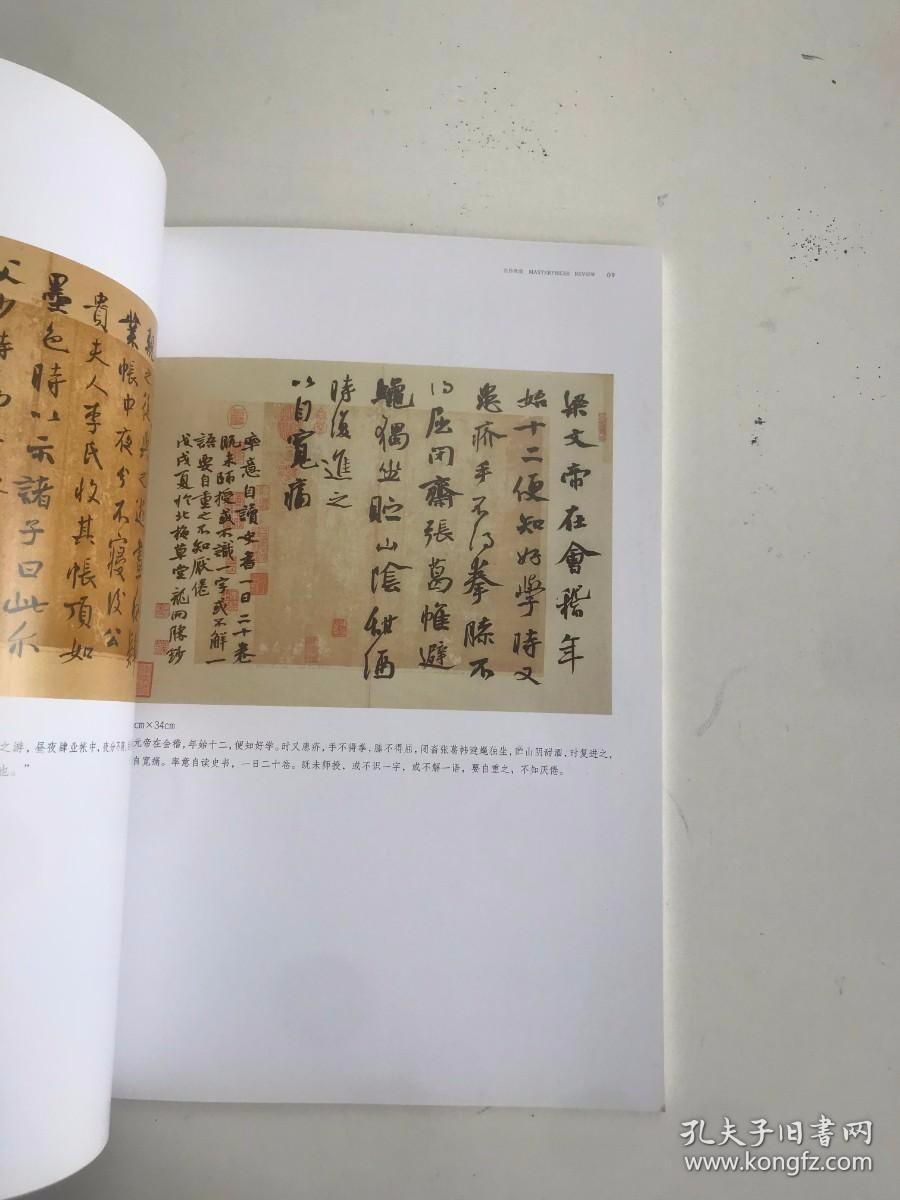 MASTERPIECES REVIEW 09
梁文帝在會稽年
始十二便知好學時又
患疥手不得拳膝不
得屈閉齋張葛幃避
蠅獨坐貯山陰甜酒
時復進之
以自寬痛
率意自讀史書一日二十卷
既未師授或不識一字或不解一
語要自重之不知厭倦
戊戌夏於北梅草堂
貴夫人李氏收其帳頂如
墨色時以示諸子曰此尔
業帳中夜分不寢後公
cm×34cm
元帝在会稽，年始十二，便知好学。时又患疥，手不得拳，膝不得屈，闭斋张葛帏避蝇独坐，贮山阴甜酒，时复进之，
自宽痛。率意自读史书，一日二十卷。既未师授，或不识一字，或不解一语，要自重之，不知厌倦。
之游，昼夜肄业帐中，夜分不寝
也。”
孔夫子旧书网
www.kongfz.com